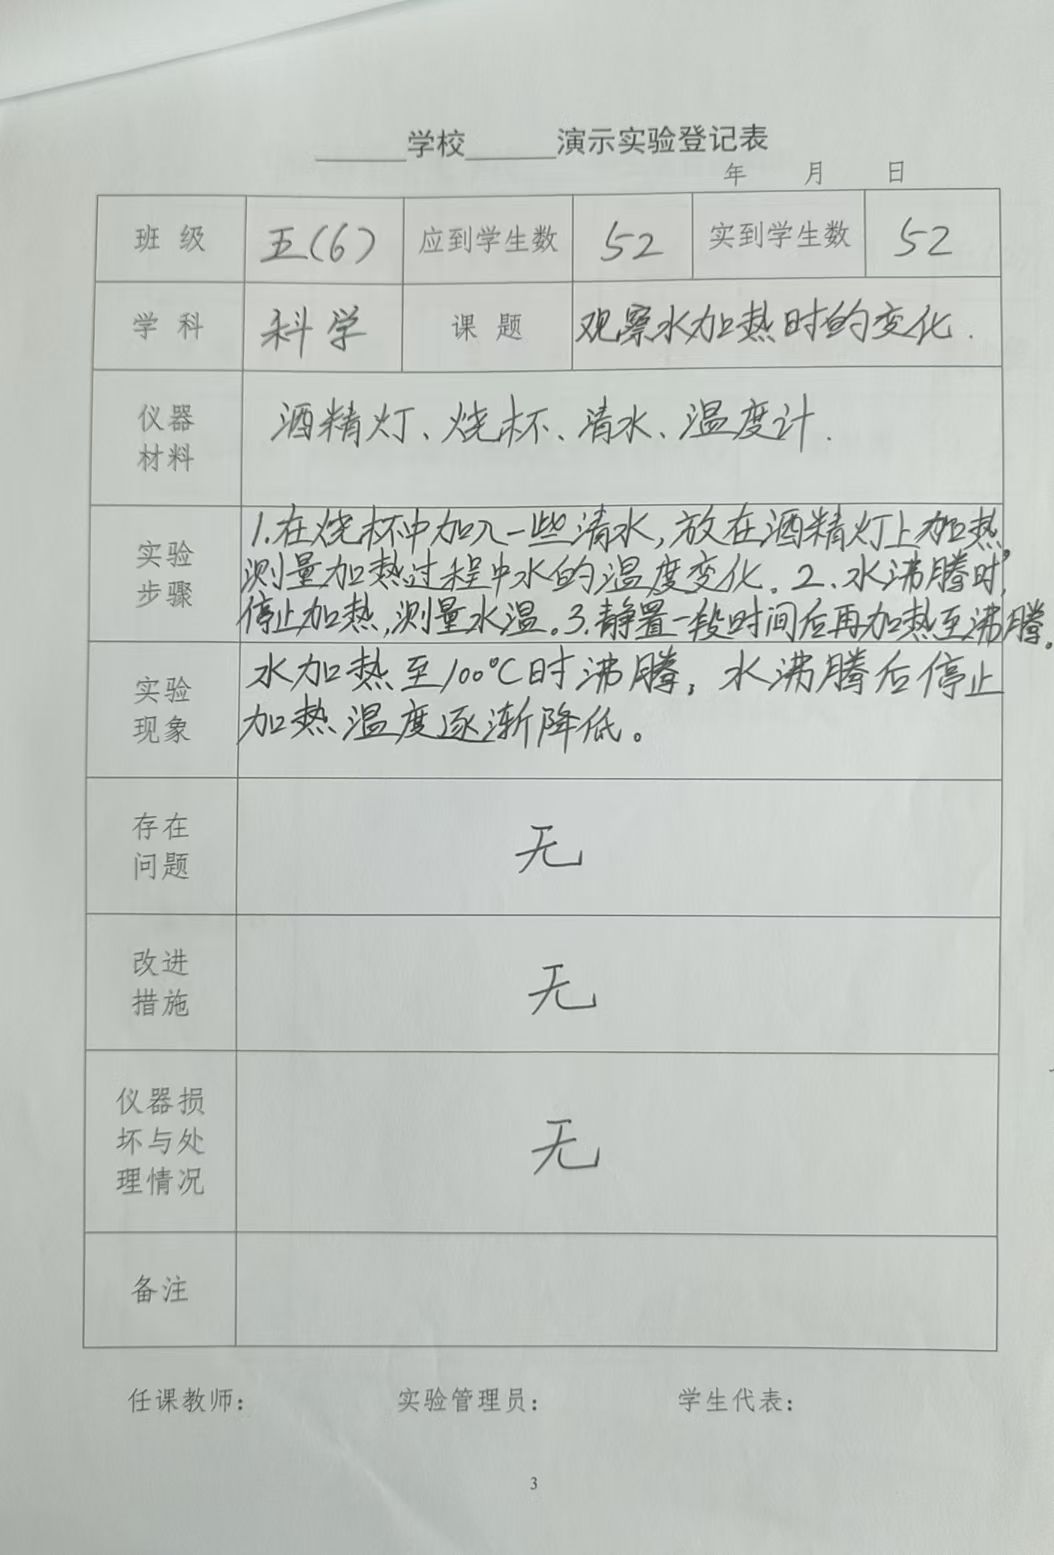 ______学校______演示实验登记表
年 月 日
班 级 五(6) 应到学生数 52 实到学生数 52
学 科 科学 课 题 观察水加热时的变化.
仪器
材料
酒精灯、烧杯、清水、温度计.
实验
步骤
1.在烧杯中加入一些清水,放在酒精灯上加热,
测量加热过程中水的温度变化。2.水沸腾时,
停止加热,测量水温。3.静置一段时间后再加热至沸腾。
实验
现象
水加热至100℃时沸腾,水沸腾后停止
加热温度逐渐降低。
存在
问题
无
改进
措施
无
仪器损
坏与处
理情况
无
备注
任课教师: 实验管理员: 学生代表:
3